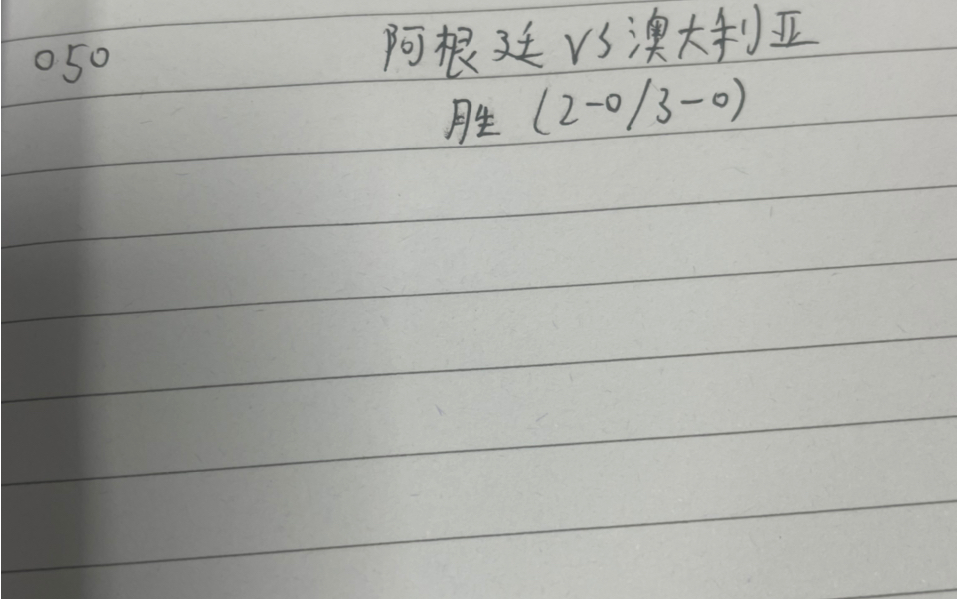 050 阿根廷 VS 澳大利亚
胜 (2-0/3-0)